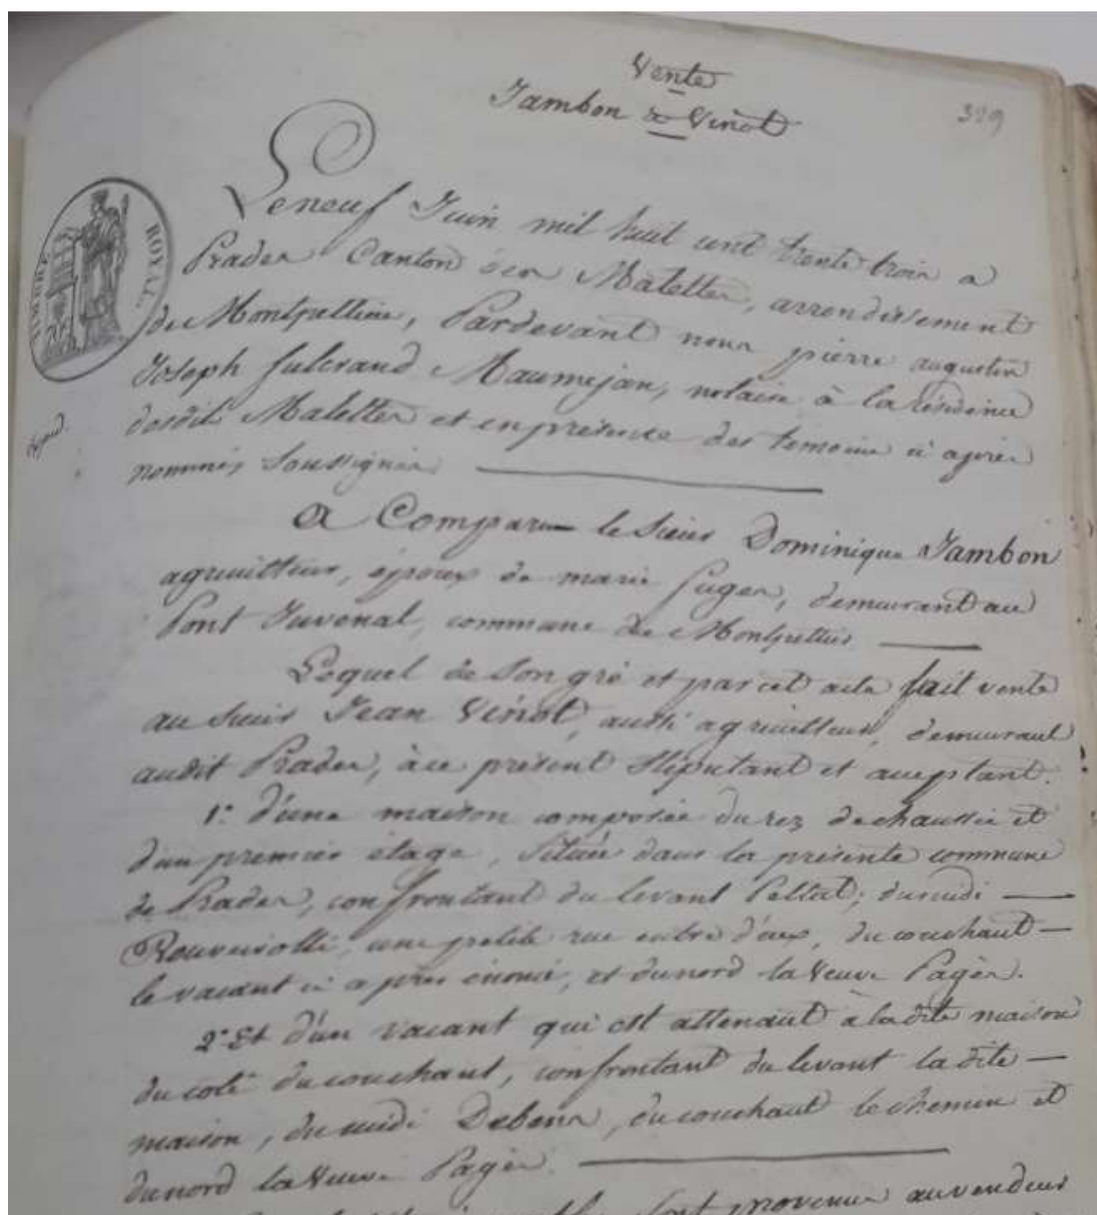 Vente
Jambon à Vinot
329
Le neuf Juin mil huit cent trente trois a
Prades Canton des Matelles, arrondissement
de Montpellier, Pardevant nous pierre augustin
Joseph fulcrand Maumejan, notaire à la résidence
desdits Matelles et en présence des temoins ci après
nommés soussignés
TIMBRE ROYAL
A Comparu le sieur Dominique Jambon
agriculteur, époux de marie Puges, demeurant au
Pont Juvenal, commune de Montpellier
Lequel de son gré et par cet acte fait vente
au sieur Jean Vinot, aussi agriculteur, demeurant
audit Prades, à ce présent stipulant et acceptant.
1° d'une maison composée du rez de chaussée et
d'un premier étage, située dans la présente commune
de Prades, confrontant du levant Pellet; du midi
une petite rue entre d'eux, du couchant
le vacant ci après énoncé, et du nord la veuve Pagès.
2° Et d'un vacant qui est attenant à la dite maison
du coté du couchant, confrontant du levant la dite
maison, du midi Debens, du couchant le chemin et
du nord la veuve Pagès.
sont provenus au vendeur